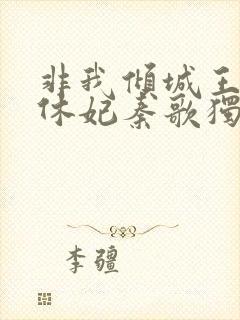 非我傾城王
休妃秦歌獨
李疆